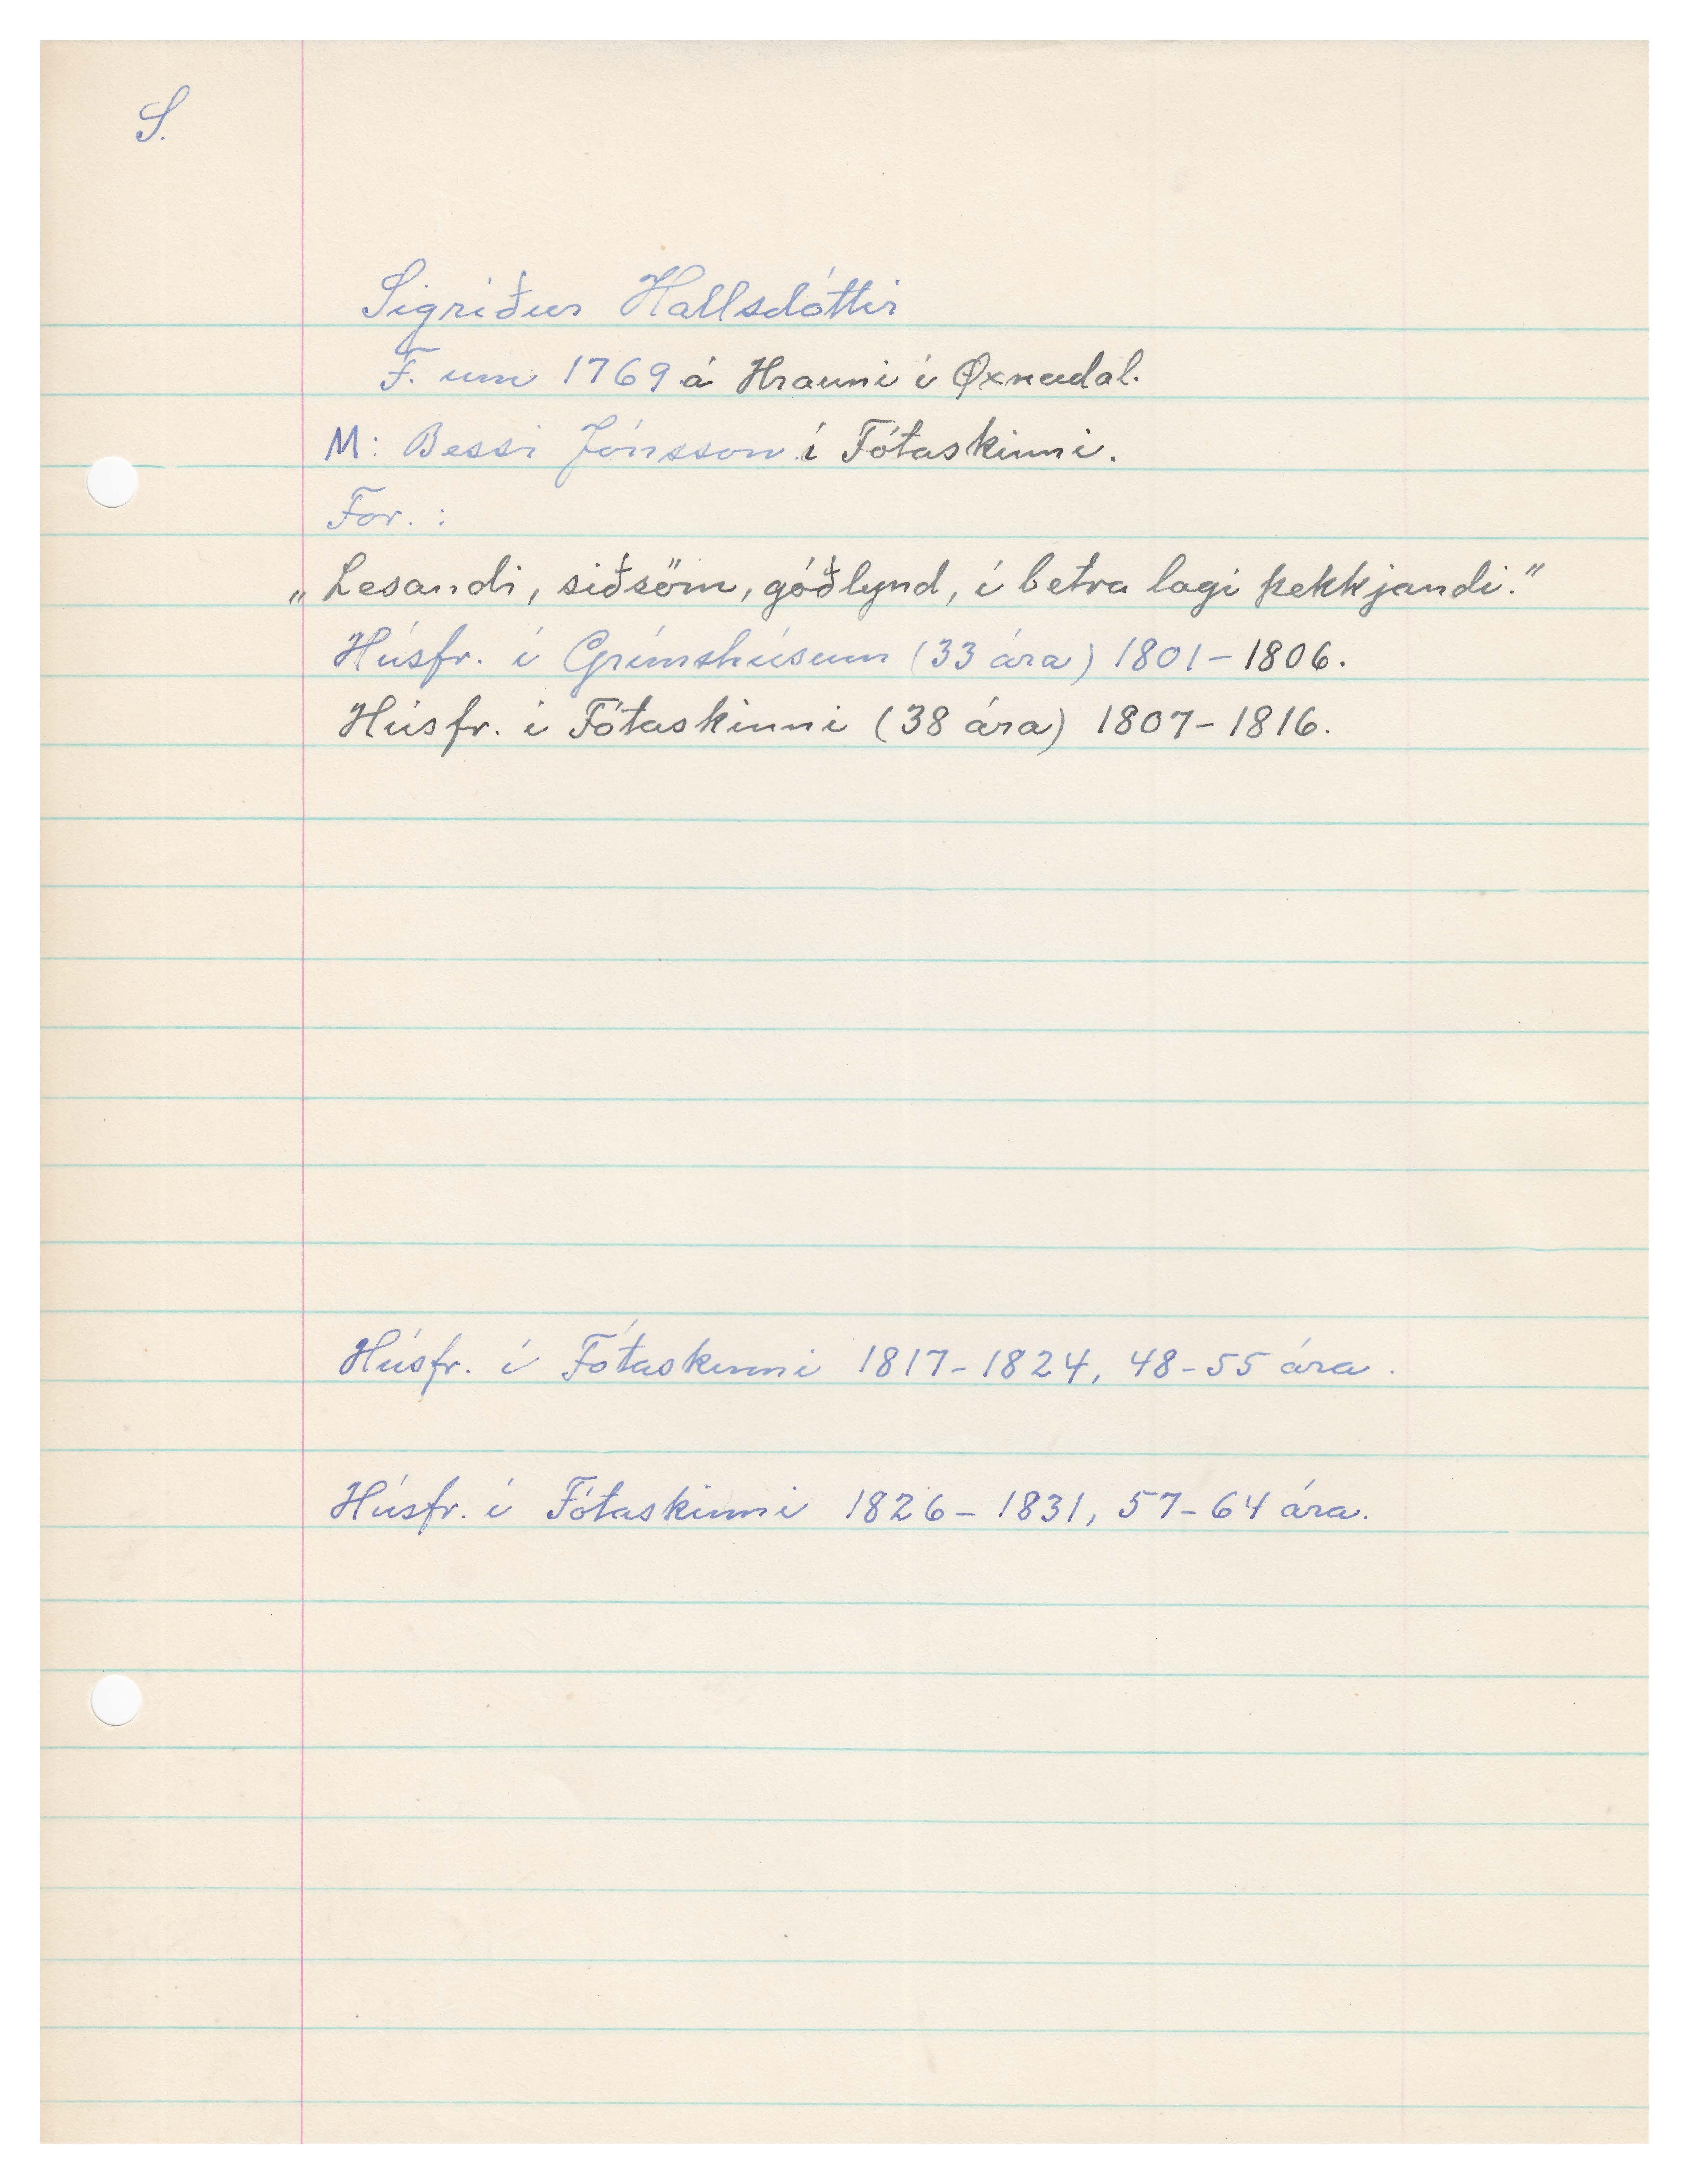 S.
Sigríður Hallsdóttir
F. um 1769 á Hrauni í Øxnadal.
M: Bessi Jónsson í Fótaskinni.
For. :
„Lesandi, siðsöm, góðlynd, í betra lagi þekkjandi."
Húsfr. í Grímshúsum (33 ára) 1801-1806.
Húsfr. í Fótaskinni (38 ára) 1807-1816.
Húsfr. í Fótaskinni 1817-1824, 48-55 ára.
Húsfr. í Fótaskinni 1826-1831, 57-64 ára.